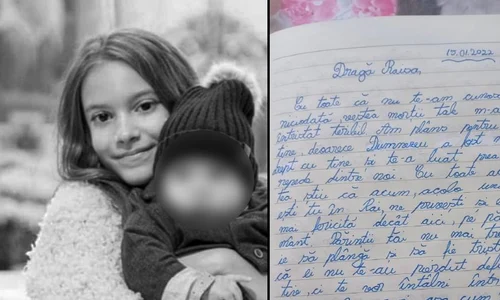 15.01.2022
Dragă Raisa,
Cu toate că nu te-am cunos
niciodată, vestea morții tale m-a
întristat teribil. Am plâns pentru
tine, deoarece Dumnezeu a fost n
cu tine și te-a luat prea
repede dintre noi. Cu toate a
tea, știu că acum, acolo un
ești tu în Rai, ne privești și e
mai fericită decât aici, pe p
mânt. Părinții tăi nu mai tre
ie să plângă și să fie triș
că ei nu te-au pierdut de
tine, ci te vor întâlni într
cum